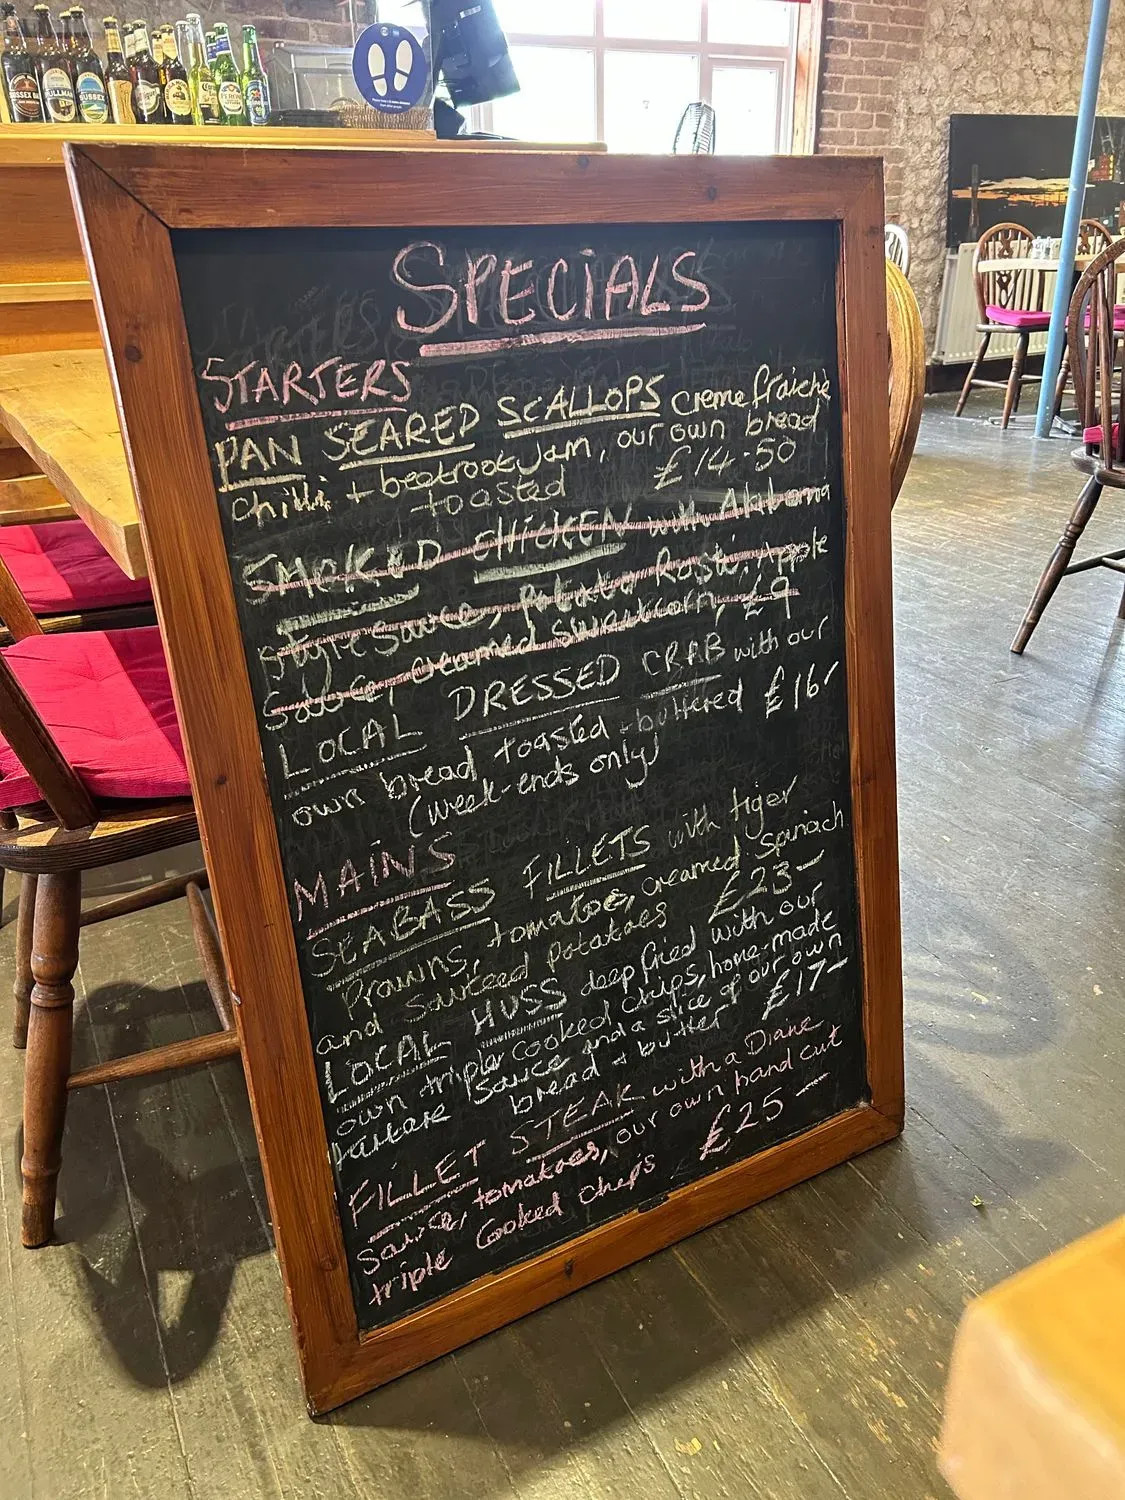 SPECiALS
STARTERS
PAN SEARED SCALLOPS creme fraiche
Chilli + beetroot Jam, our own bread
toasted £14.50
SMOKED CHICKEN with Alabama
style Sauce, Potato Rosti, Apple
Sauce, creamed Sweetcorn, £9
LOCAL DRESSED CRAB with our
own bread toasted + buttered £16-
(week-ends only)
MAiNS
SEABASS FILLETS with tiger
Prawns, tomatoes, creamed Spinach
and Sauteed Potatoes £23-
LOCAL HUSS deep fried with our
own triple cooked chips, home-made
tartare Sauce and a slice of our own
bread + butter £17-
FILLET STEAK with a Diane
Sauce, tomatoes, our own hand cut
triple Cooked Chips £25-